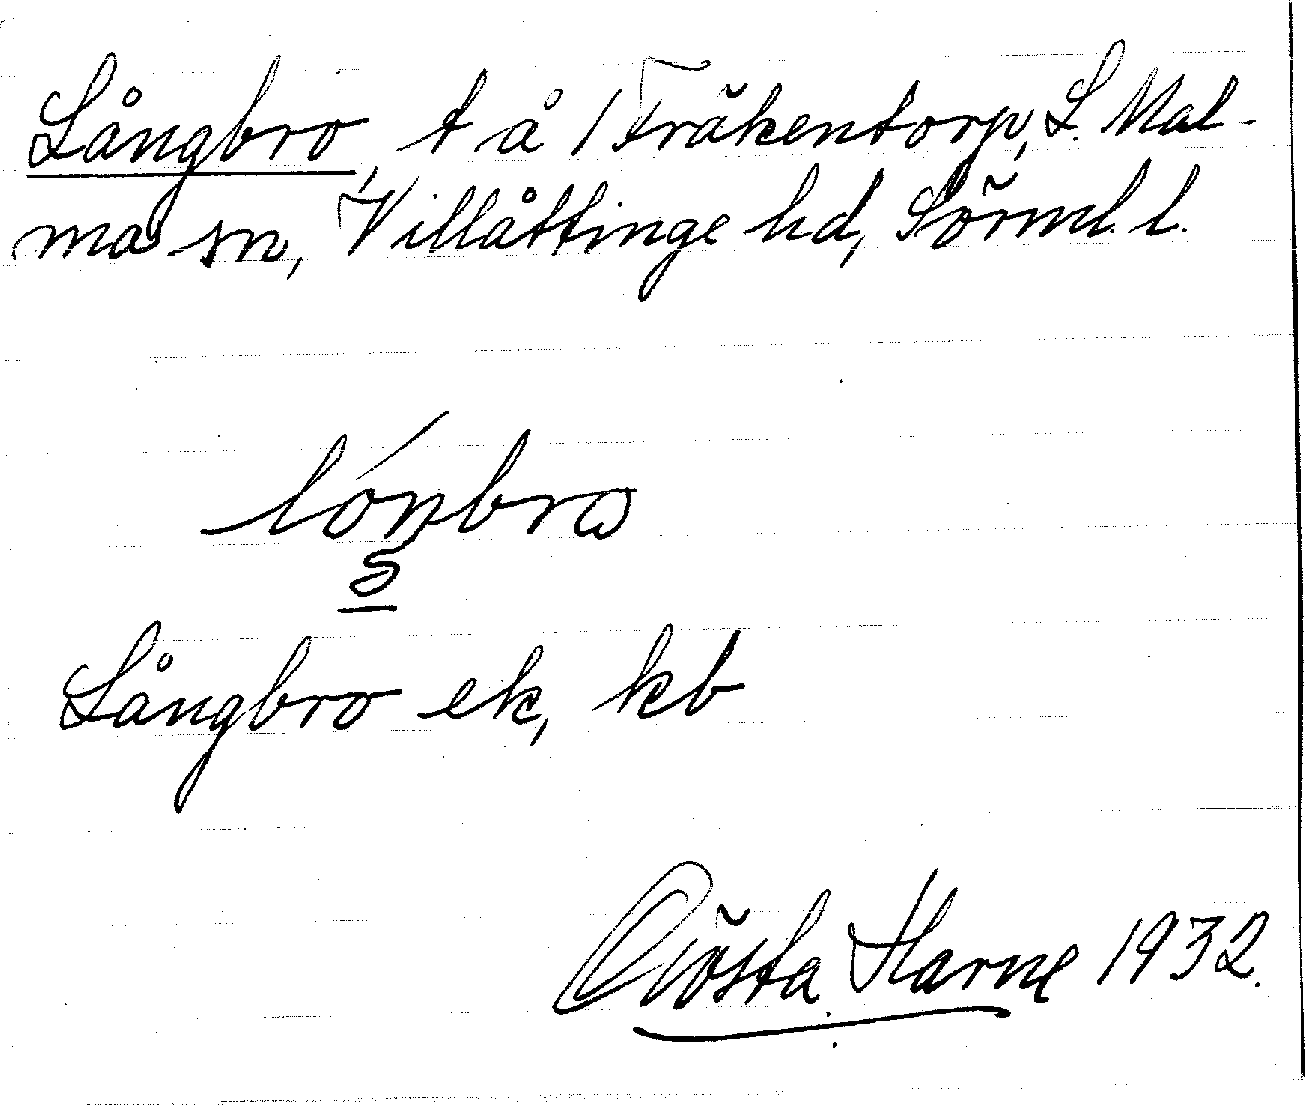 Långbro, t å 1 Fräkentorp, L. Mal-
ma sn, Villåttinge hd, Sörml. l.
Långbro ek, kb
Gösta Harne 1932.